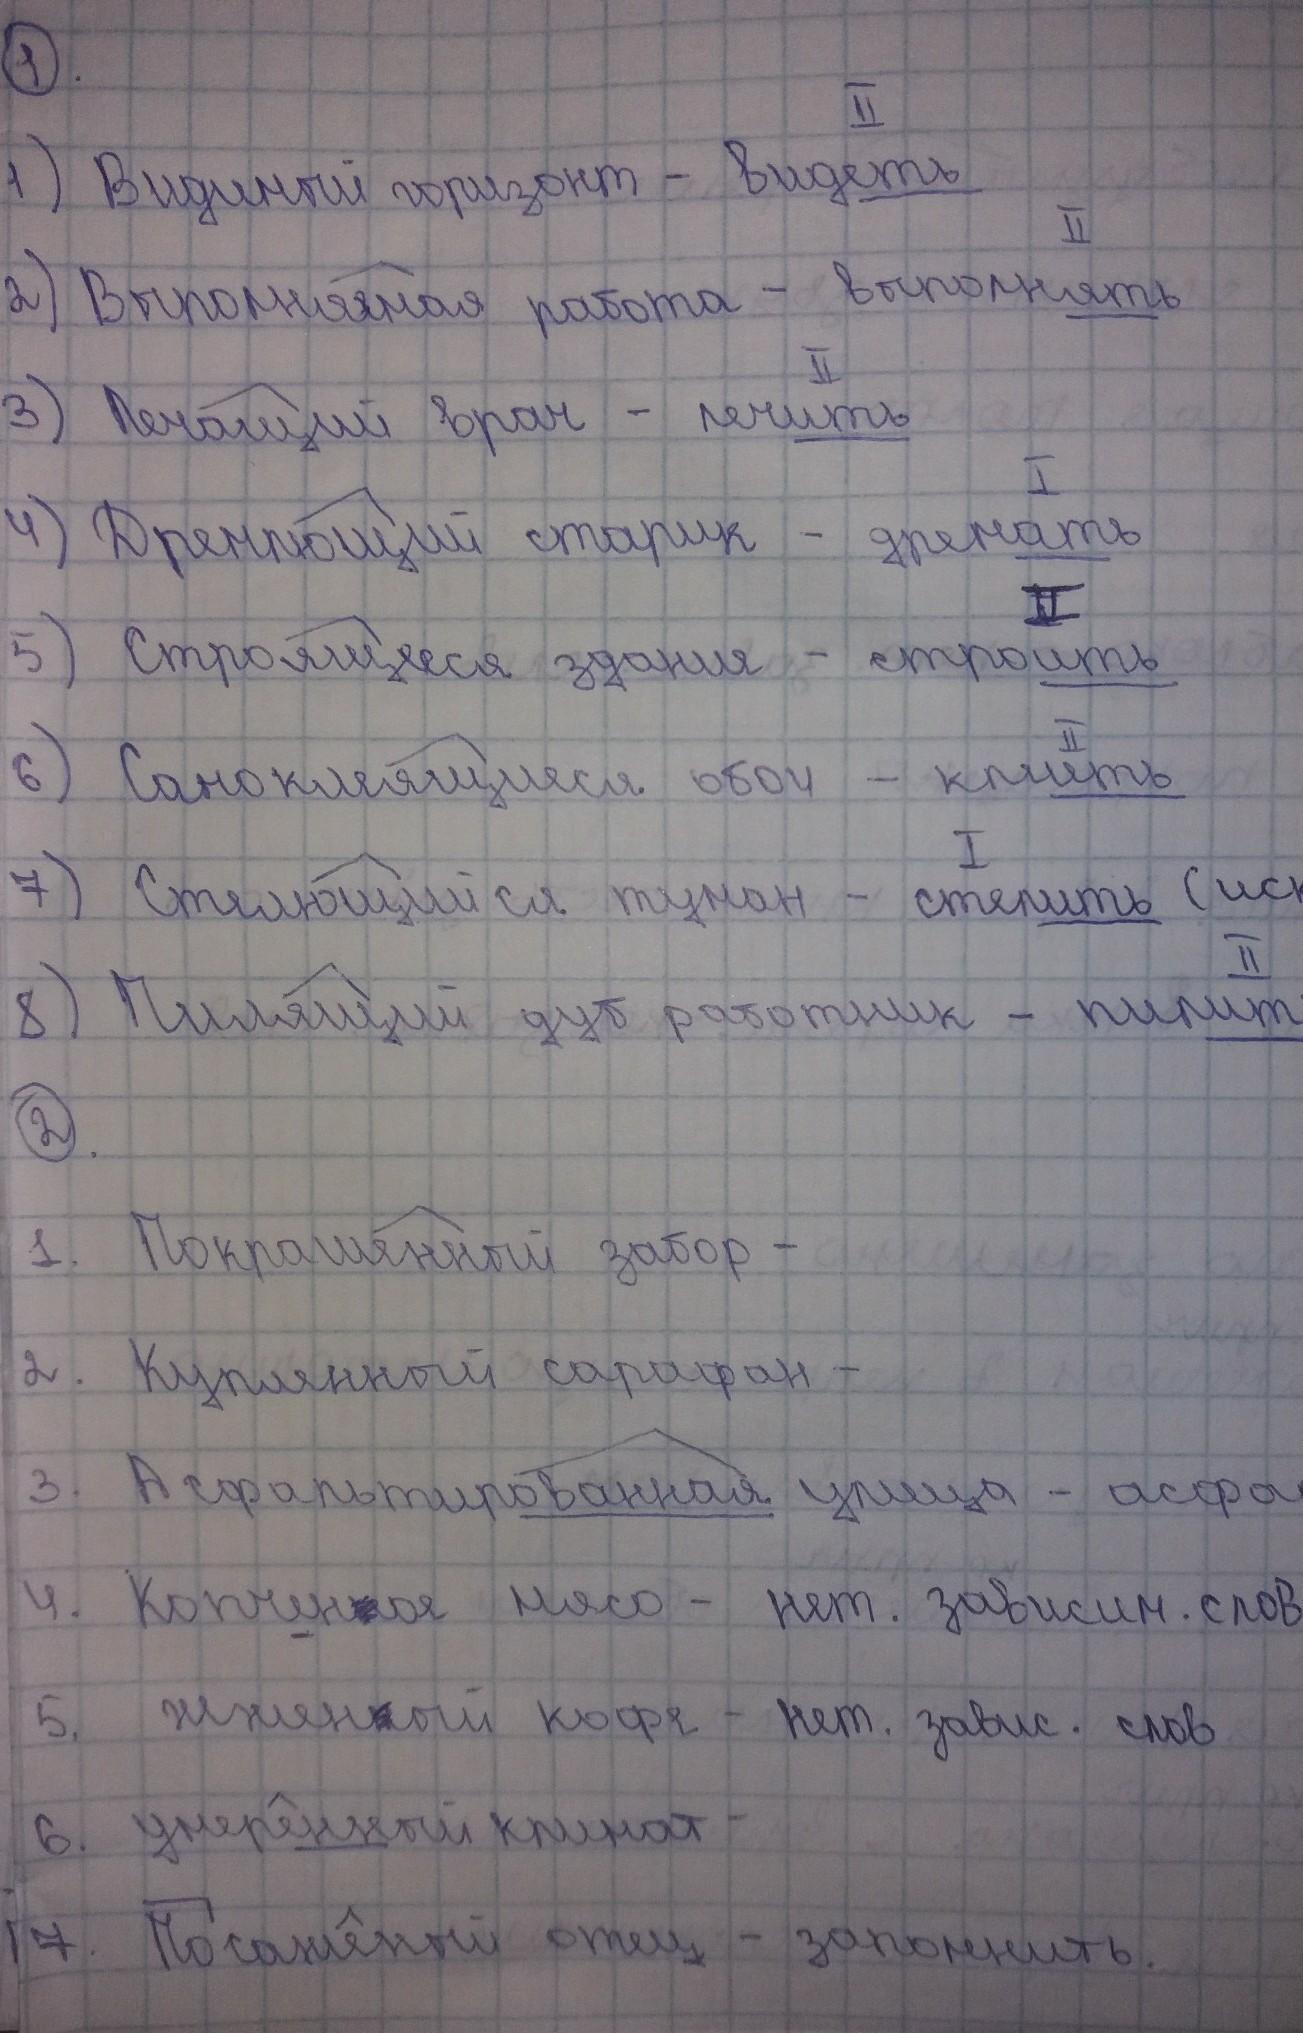 1.
II
1) Видимый горизонт - видеть
II
2) Выполняемая работа - выполнять
II
3) Лечащий врач - лечить
I
4) Дремлющий старик - дремать
II
5) Строящееся здания - строить
II
6) Самоклеящиеся обои - клеить
I
7) Стелющийся туман - стелить (иск
II
8) Пилящий дуб работник - пилит
2.
1. Покрашенный забор -
2. Купленный сарафан -
3. Асфальтированная улица - асфа
4. Копченое мясо - нет. зависим. слов
5. жженый кофе - нет. завис. слов
6. умеренный климат -
7. Посаженый отец - запомнить.